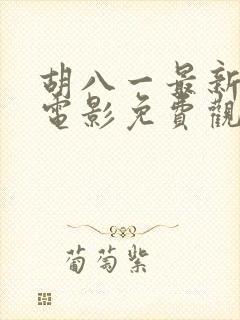 胡八一最新
電影免費觀
葡萄紫